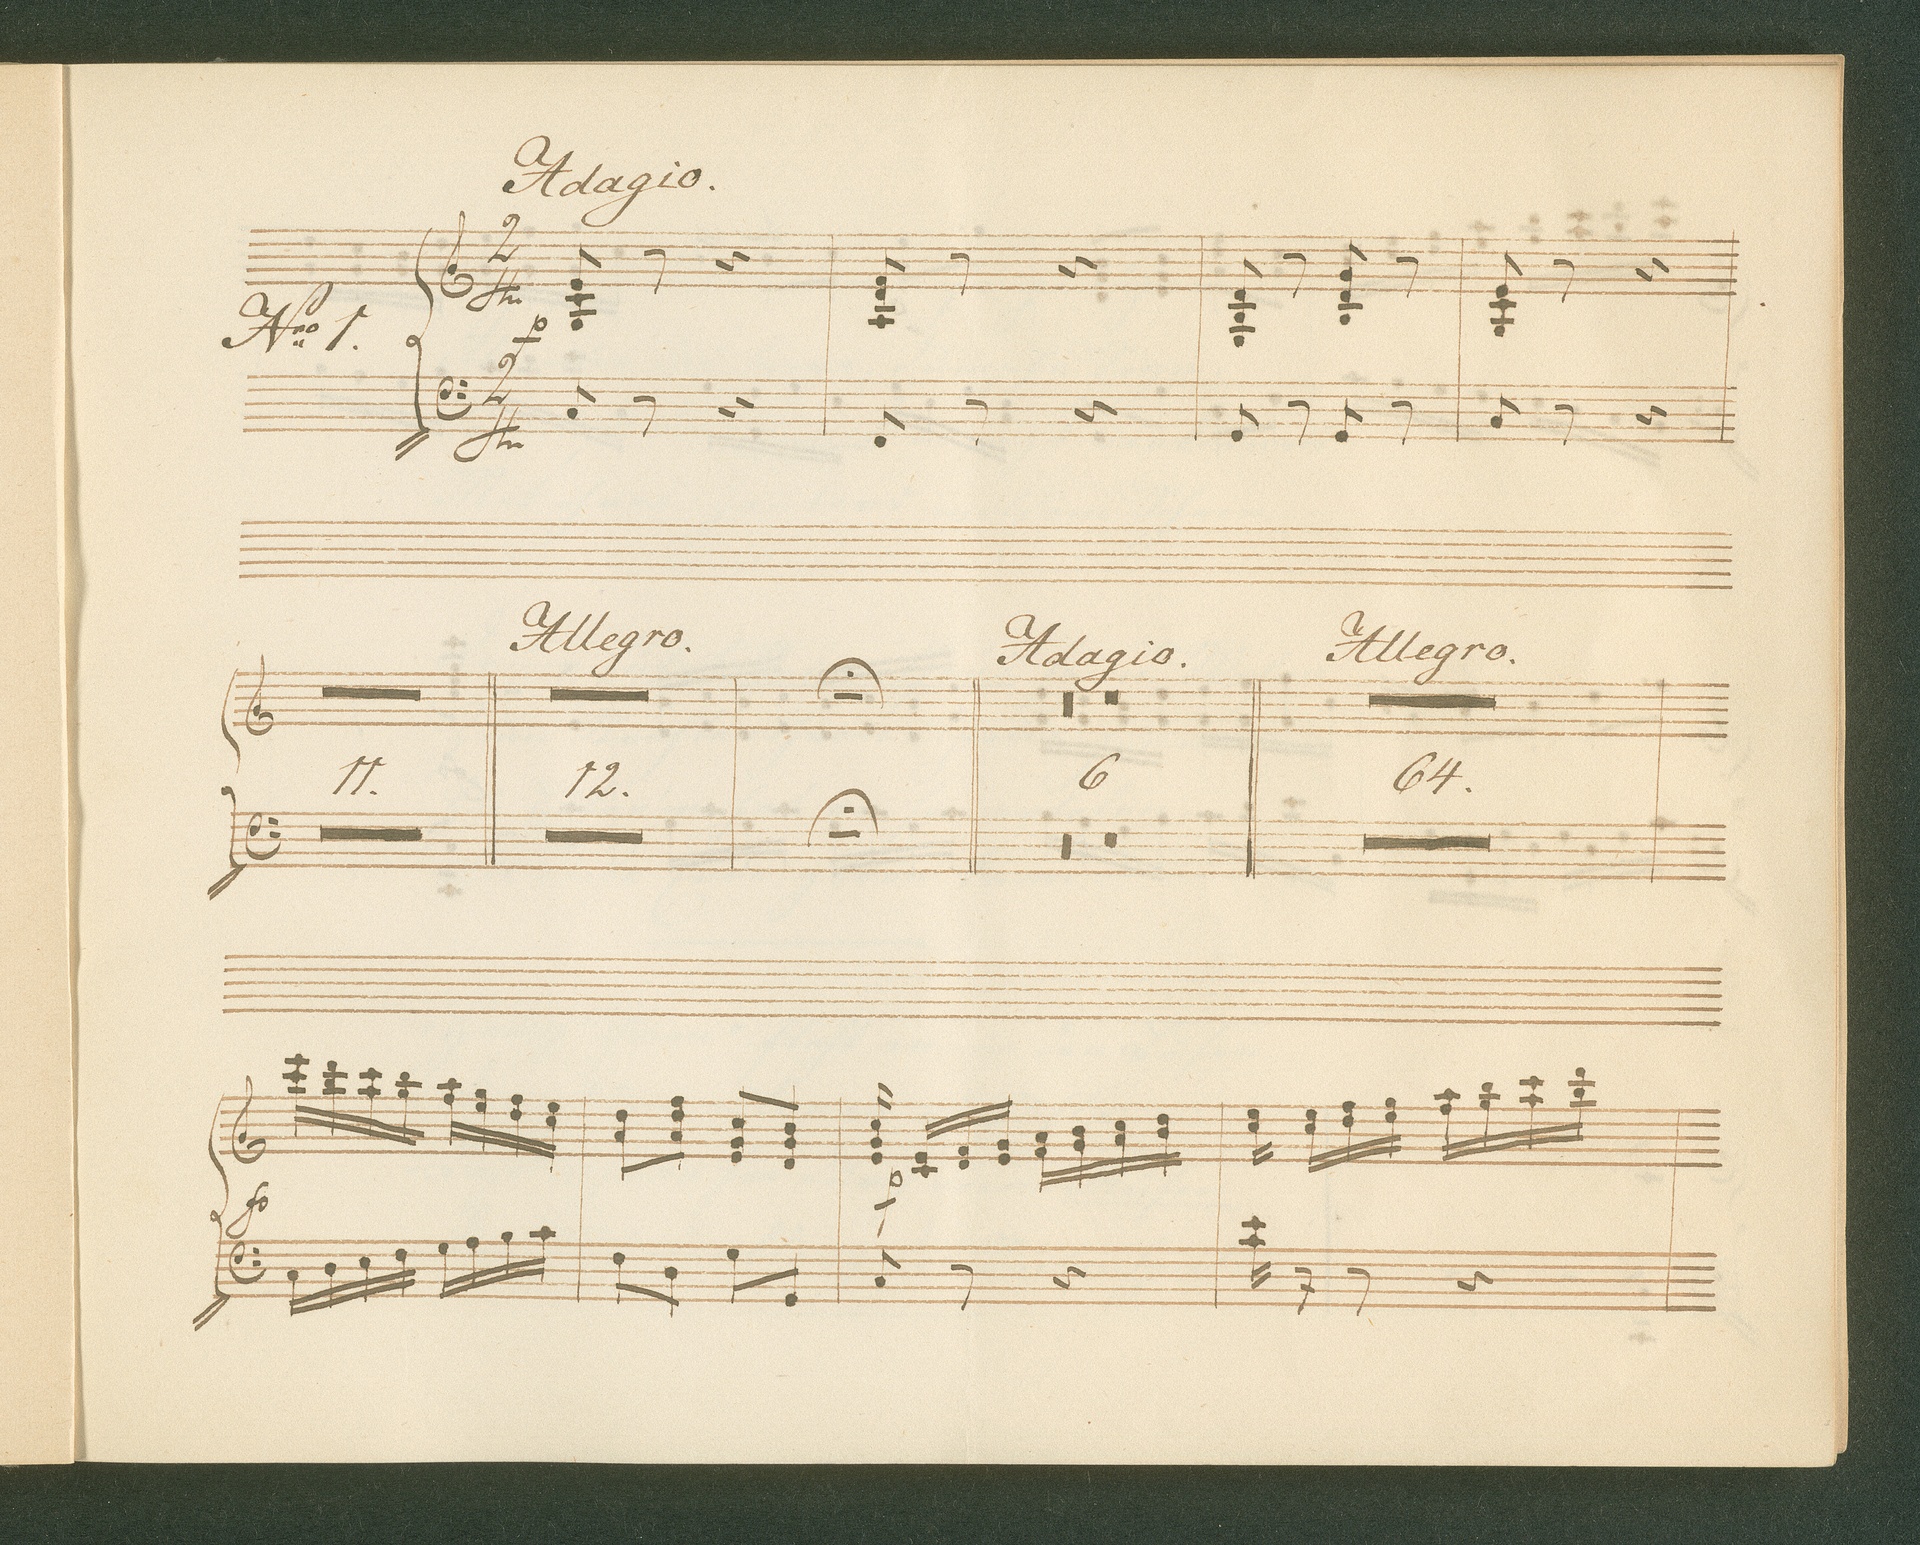 Adagio.
Nro 1.
2
4
p
2
4
Allegro. Adagio. Allegro.
11. 12. 6 64.
fo
p